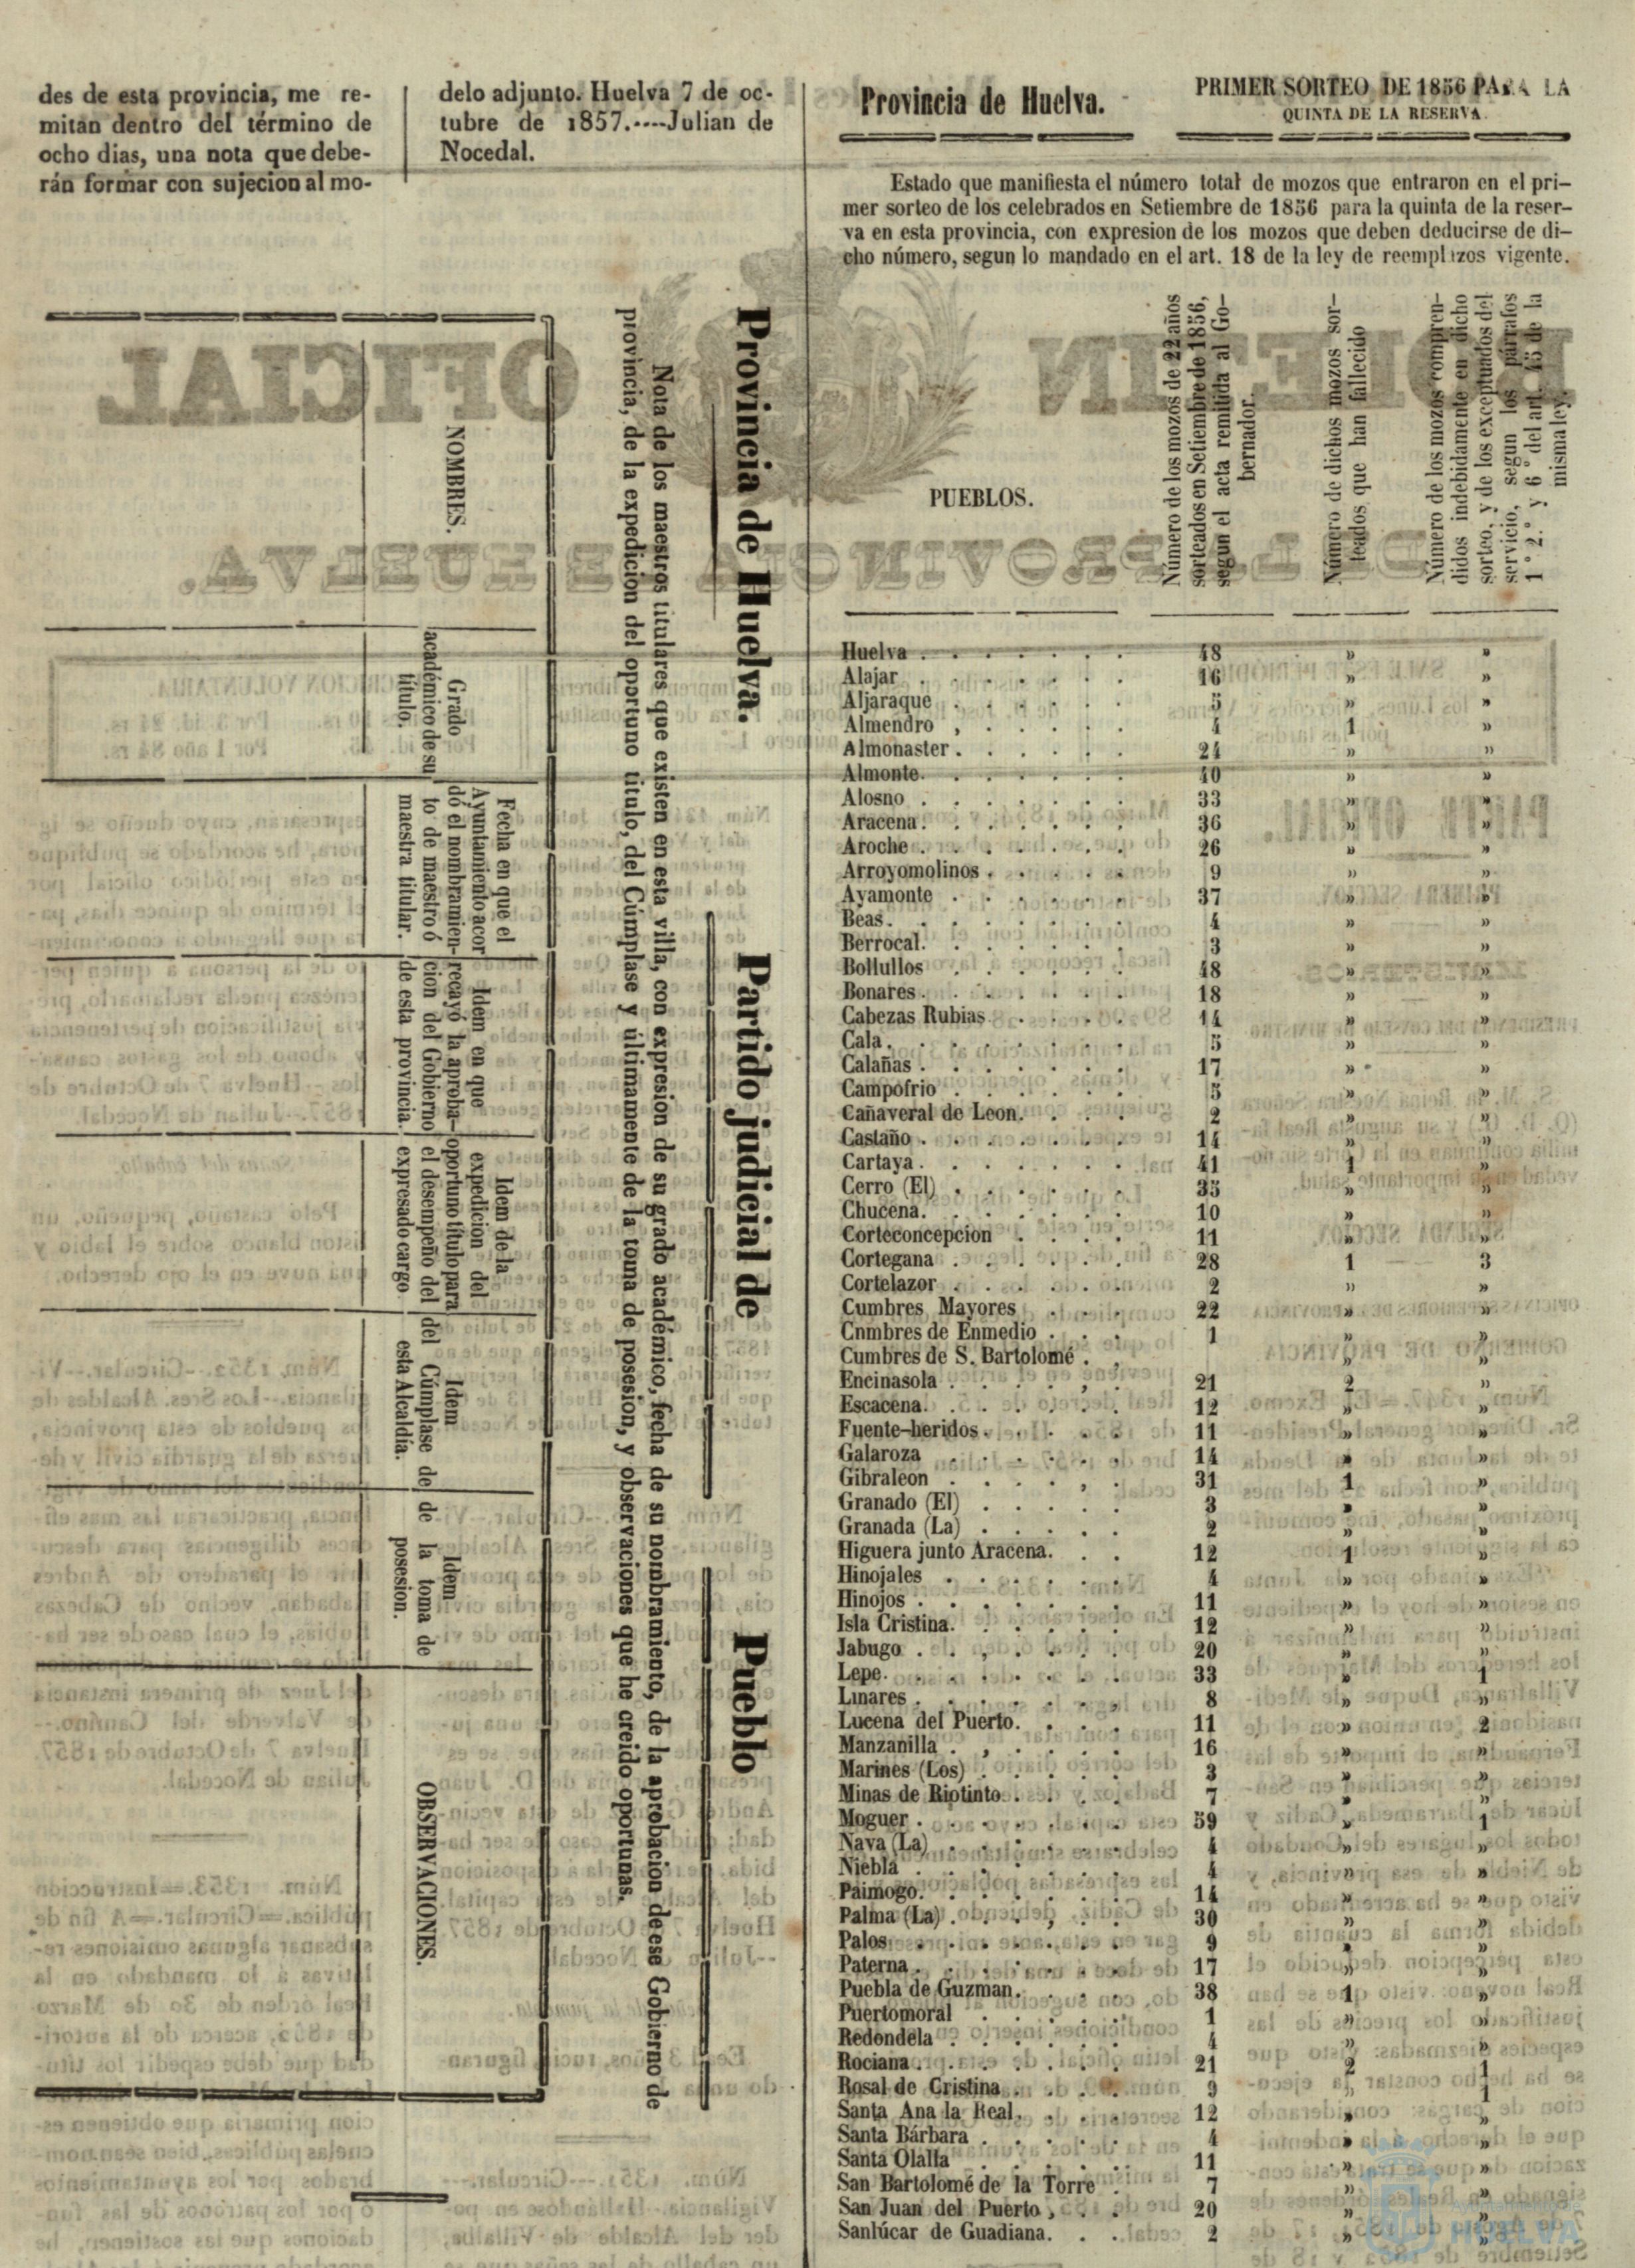 des de esta provincia, me re-
mitan dentro del término de
ocho dias, una nota que debe-
rán formar con sujecion al mo-
delo adjunto. Huelva 7 de oc-
tubre de 1857.----Julian de
Nocedal.
Provincia de Huelva. Partido judicial de Pueblo
Nota de los maestros titulares que existen en esta villa, con expresion de su grado académico, fecha de su nombramiento, de la aprobacion de ese Gobierno de
provincia, de la expedicion del oportuno titulo, del Cúmplase y últimamente de la toma de posesion, y observaciones que he creido oportunas.
NOMBRES.
Grado
académico de su
título.
Fecha en que el
Ayuntamiento acor
dó el nombramien-
to de maestro ó
maestra titular.
Idem en que
recayó la aproba-
cion del Gobierno
de esta provincia.
Idem de la
expedicion del
oportuno título para
el desempeño del
expresado cargo
Idem
del Cúmplase de
esta Alcaldía.
Idem
de la toma de
posesion.
OBSERVACIONES.
Provincia de Huelva.
PRIMER SORTEO DE 1856 PARA LA
QUINTA DE LA RESERVA.
Estado que manifiesta el número total de mozos que entraron en el pri-
mer sorteo de los celebrados en Setiembre de 1856 para la quinta de la reser-
va en esta provincia, con expresion de los mozos que deben deducirse de di-
cho número, segun lo mandado en el art. 18 de la ley de reemplazos vigente.
PUEBLOS.
Número de los mozos de 22 años
sorteados en Setiembre de 1856,
segun el acta remitida al Go-
bernador.
Número de dichos mozos sor-
teados que han fallecido
Número de los mozos compren-
didos indebidamente en dicho
sorteo, y de los exceptuados del
servicio, segun los párrafos
1.° 2.° y 6.° del art. 45 de la
misma ley.
Huelva . . . . . . . 48 » »
Alajar . . . . . . . 16 » »
Aljaraque . . . . . . 5 » »
Almendro , . . . . . 4 1 »
Almonaster . . . . . . 24 » »
Almonte. . . . . . . 40 » »
Alosno . . . . . . . 33 » »
Aracena. . . . . . . 36 » »
Aroche . . . . . . . 26 » »
Arroyomolinos . . . . . 9 » »
Ayamonte . . . . . . 37 » »
Beas. . . . . . . . 4 » »
Berrocal. . . . . . . 3 » »
Bollullos . . . . . . 48 » »
Bonares . . . . . . . 18 » »
Cabezas Rubias . . . . . 14 » »
Cala. . . . . . . . 5 » »
Calañas . . . . . . . 17 » »
Campofrio . . . . . . 5 » »
Cañaveral de Leon. . . . 2 » »
Castaño . . . . . . . 14 » »
Cartaya . . . . . . . 41 1 »
Cerro (El) . . . . . . 35 » »
Chucena. . . . . . . 10 » »
Corteconcepcion . . . . 11 » »
Cortegana . . . . . . 28 1 3
Cortelazor . . . . . . 2 » »
Cumbres Mayores . . . . 22 » »
Cnmbres de Enmedio . . . 1 » »
Cumbres de S. Bartolomé . . » »
Encinasola . . . . , . 21 2 »
Escacena. . . . . . . 12 » »
Fuente-heridos . . . . . 11 » »
Galaroza . . . . . . 14 » »
Gibraleon . . . . , . 31 1 »
Granado (El) . . . . . 3 » »
Granada (La) . . . . . 2 » »
Higuera junto Aracena. . . 12 1 »
Hinojales . . . . . . 4 » »
Hinojos . . . . . . . 11 » »
Isla Cristina. . . . . . 12 » »
Jabugo . . . , . . . 20 » »
Lepe. . . . . . . . 33 » 1
Linares . . . . . . . 8 » »
Lucena del Puerto. . . . 11 » 2
Manzanilla . , . . . . 16 » »
Marines (Los) . . . . . 3 » »
Minas de Riotinto . . . . 7 » »
Moguer . . . . . . . 59 » 1
Nava (La) . . . . . . 4 » »
Niebla . . . . . . . 4 » »
Paimogo. . . . . . . 14 » »
Palma (La) . . . . . . 30 » »
Palos . . . . . . . 9 » »
Paterna . . . . . . . 17 » »
Puebla de Guzman. . . . 38 1 »
Puertomoral . . . . . 1 » »
Redondela . . . . . . 4 » »
Rociana . . . . . . . 21 2 1
Rosal de Cristina . . . . 9 » 1
Santa Ana la Real. . . . 12 » »
Santa Bárbara . . . . . 4 » »
Santa Olalla . . . . . 11 » »
San Bartolomé de la Torre . 7 » »
San Juan del Puerto , . . 20 » »
Sanlúcar de Guadiana. . . 2 » »
HUELVA